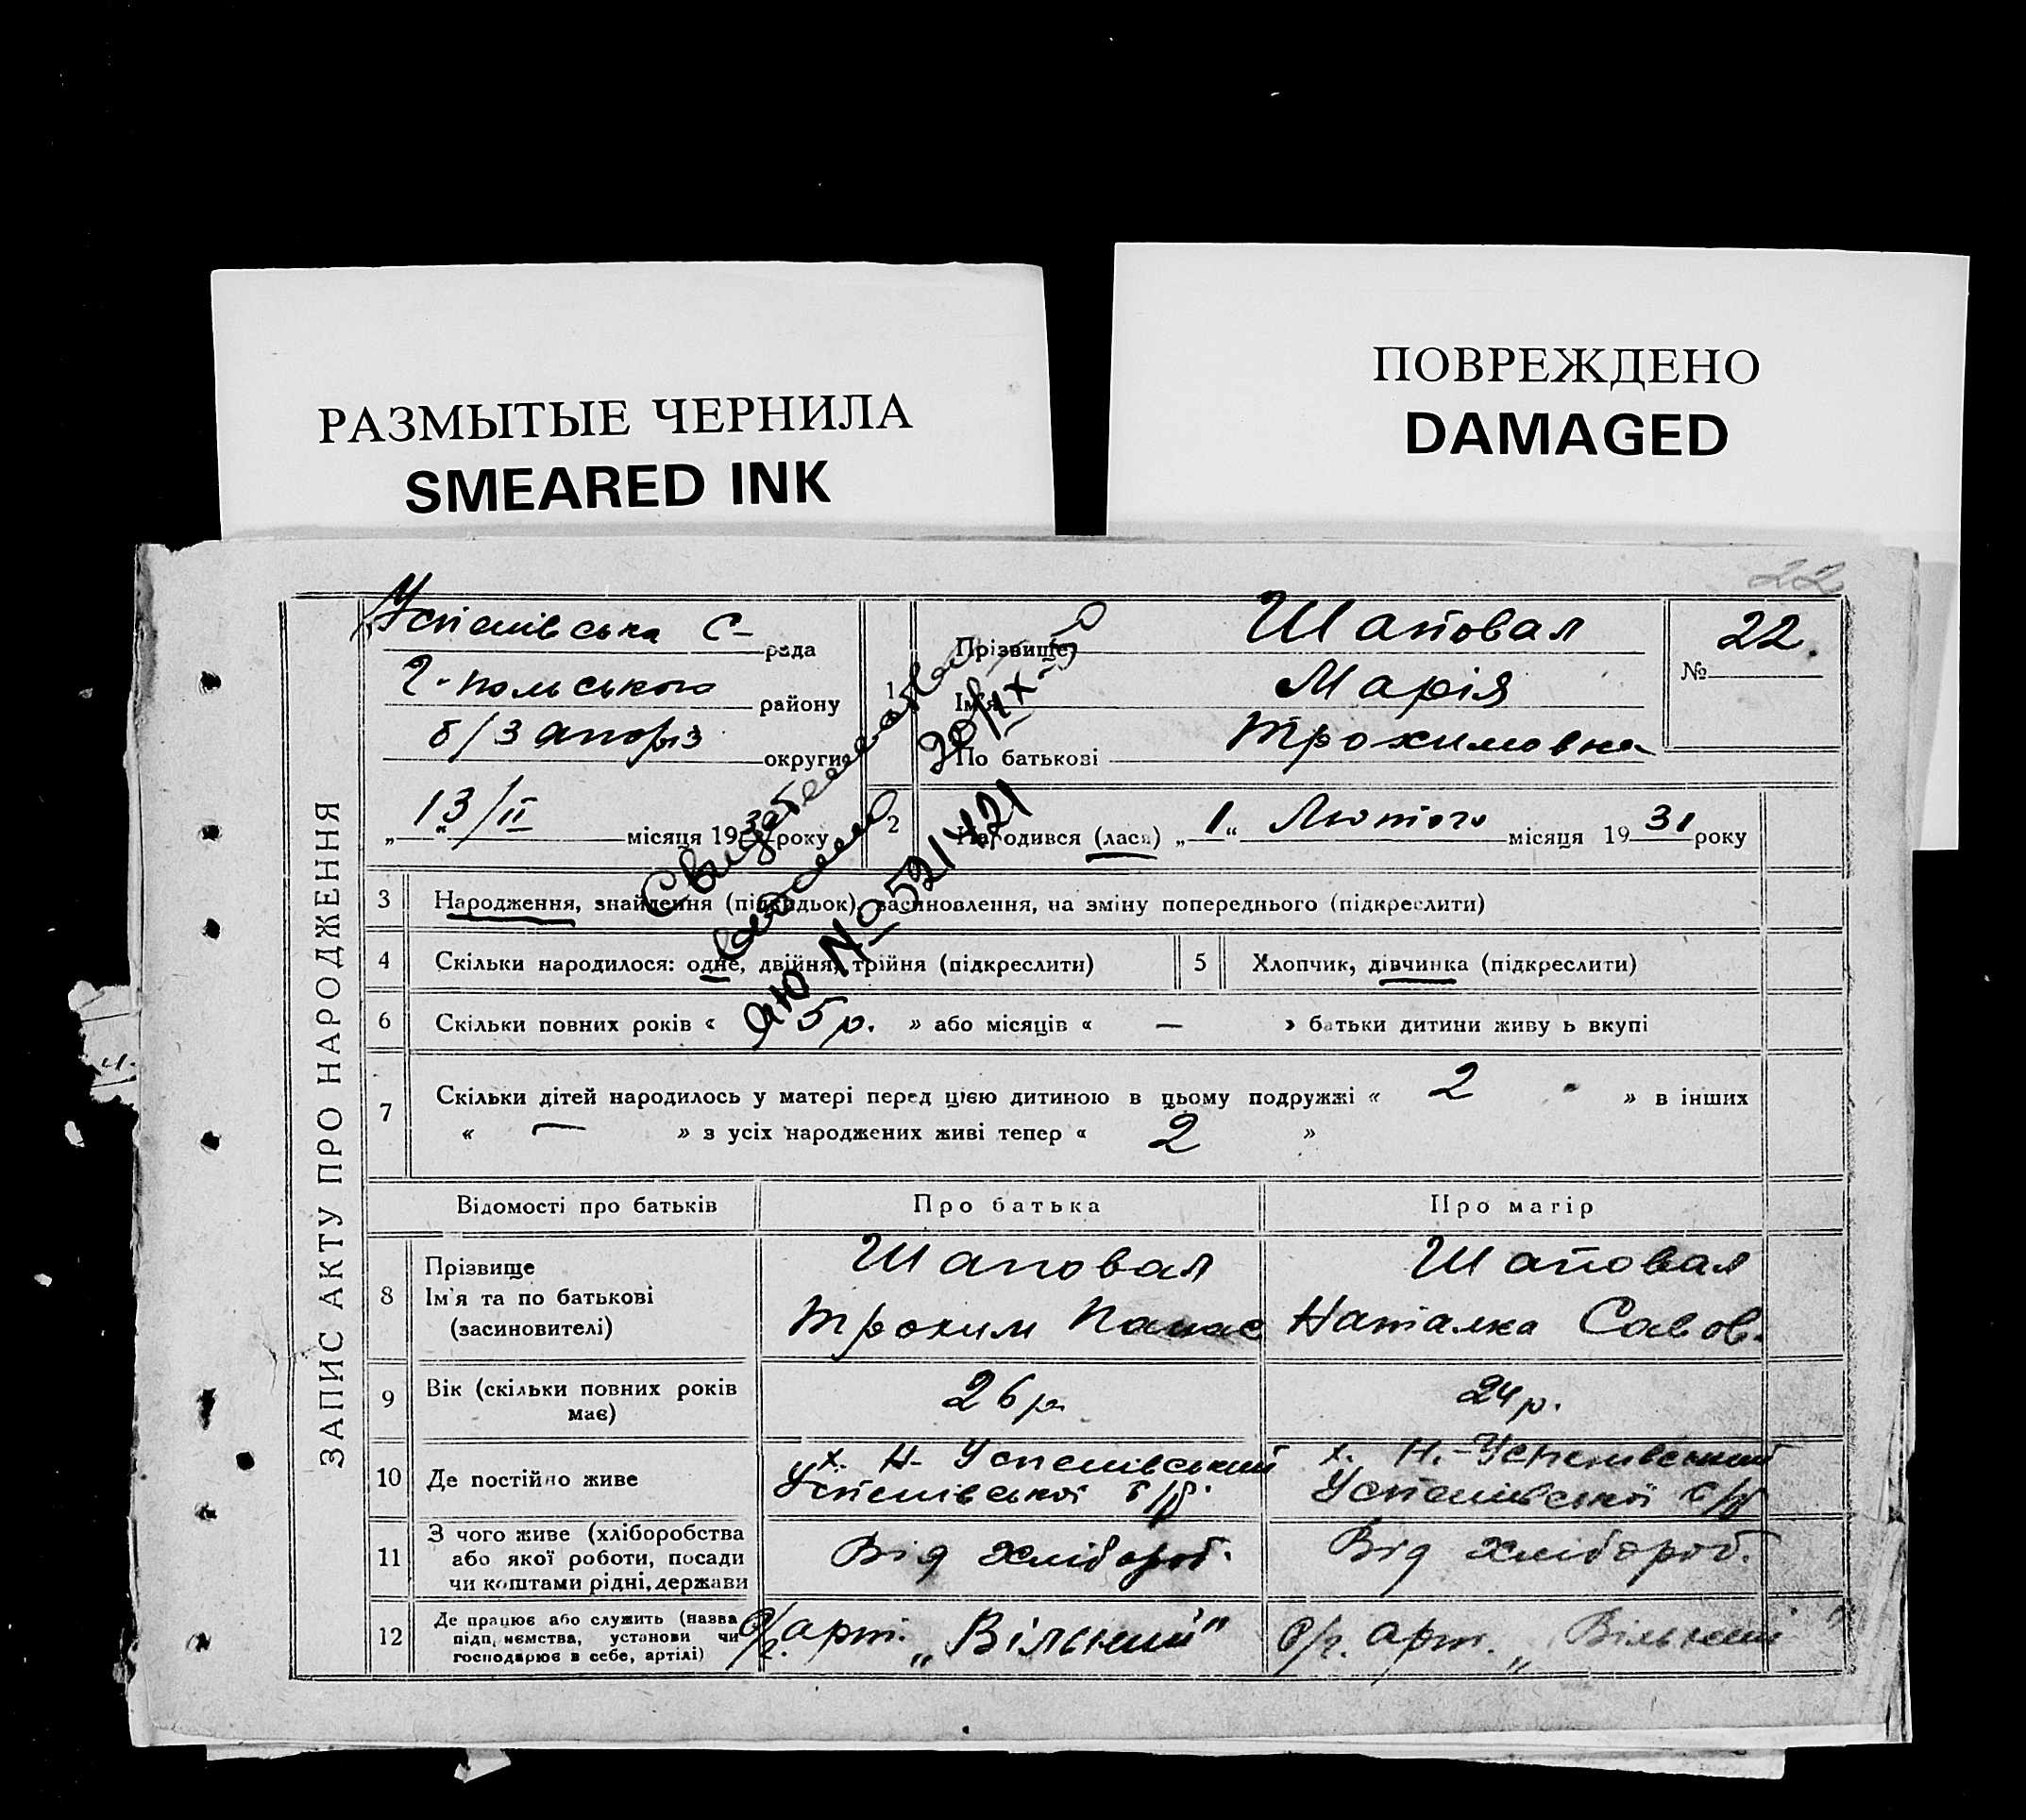 РАЗМЫТЫЕ ЧЕРНИЛА
SMEARED INK
ПОВРЕЖДЕНО
DAMAGED
22
ЗАПИС АКТУ ПРО НАРОДЖЕННЯ
Успенівська С- рада
Г-польського району
б/Запоріз округи
„13/II" місяця 19 року
1 Прізвище Шаповал
Ім'я Марія
По батькові Трохимовна
№ 22.
2 Народився (лася) „1" Лютого місяця 1931 року
Свидетельство
20/IX-50
ЯЮ № 521421
3 Народження, знайдення (підкидьок), засиновлення, на зміну попереднього (підкреслити)
4 Скільки народилося: одне, двійня, трійня (підкреслити)
5 Хлопчик, дівчинка (підкреслити)
6 Скільки повних років « 5 р. » або місяців « — » батьки дитини живу ь вкупі
7 Скільки дітей народилось у матері перед цією дитиною в цьому подружжі « 2 » в інших
« — » з усіх народжених живі тепер « 2 »
Відомості про батьків Про батька Про матір
8 Прізвище
Ім'я та по батькові
(засиновителі)
Шаповал
Трохим Панас
Шаповал
Наталка Савов.
9 Вік (скільки повних років
має)
26 р.
24 р.
10 Де постійно живе
х. Н- Успенівський
Успенівської с/р.
х. Н.-Успенівський
Успенівської с/р
11 З чого живе (хліборобства
або якої роботи, посади
чи коштами рідні, держави
Від хлібороб.
Від хлібороб.
12 Де працює або служить (назва
підп, немства, установи чи
господарює в себе, артілі)
с/г. арт. „Вільний"
с/г. арт. „Вільний"